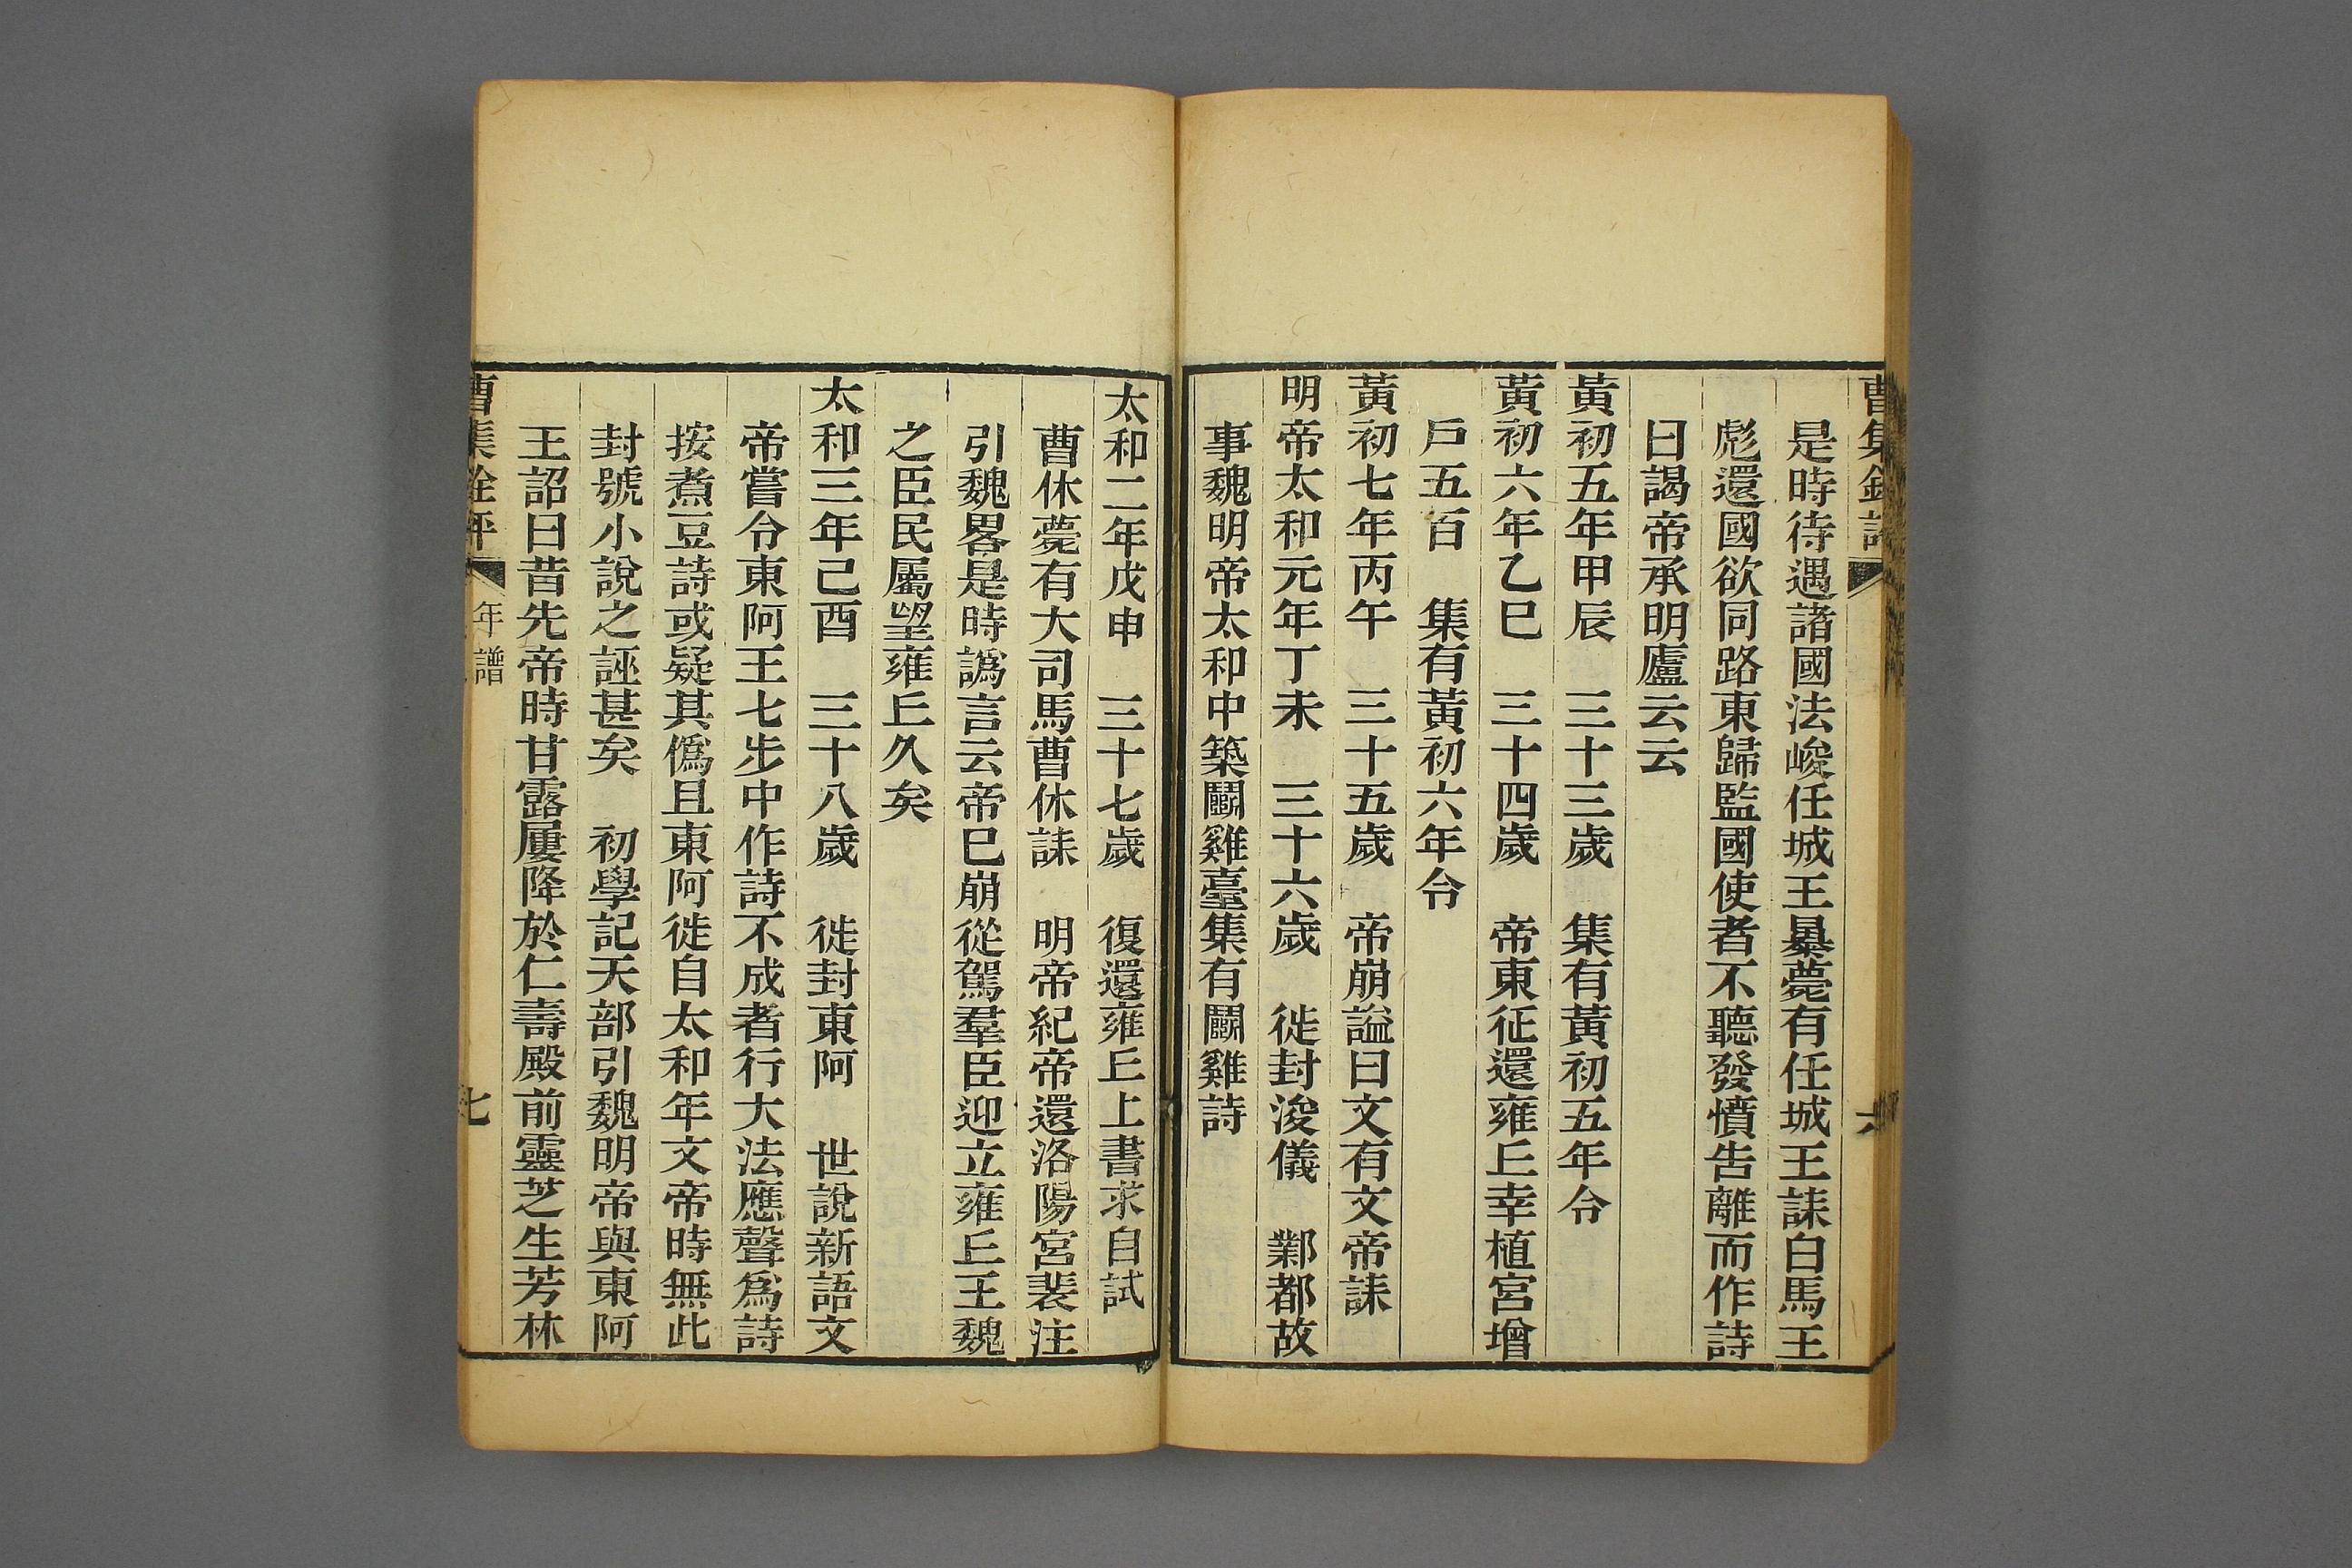 是時待遇諸國法峻任城王㬥薨有任城王誄白馬王
彪還國欲同路東歸監國使者不聽發憤告離而作詩
曰謁帝承明廬云云
黃初五年甲辰　三十三歲　集有黃初五年令
黃初六年乙巳　三十四歲　帝東征還雍丘幸植宮增
戶五百　集有黃初六年令
黃初七年丙午　三十五歲　帝崩謚曰文有文帝誄
明帝太和元年丁未　三十六歲　徙封浚儀　鄴都故
事魏明帝太和中築鬭雞臺集有鬭雞詩
太和二年戊申　三十七歲　復還雍丘上書求自試
曹休薨有大司馬曹休誄　明帝紀帝還洛陽宮裴注
引魏畧是時譌言云帝巳崩從駕羣臣迎立雍丘王魏
之臣民屬望雍丘久矣
太和三年己酉　三十八歲　徙封東阿　世說新語文
帝嘗令東阿王七步中作詩不成者行大法應聲爲詩
按煮豆詩或疑其僞且東阿徙自太和年文帝時無此
封號小說之誣甚矣　初學記天部引魏明帝與東阿
王詔曰昔先帝時甘露屢降於仁壽殿前靈芝生芳林
曹集銓評
年譜
七